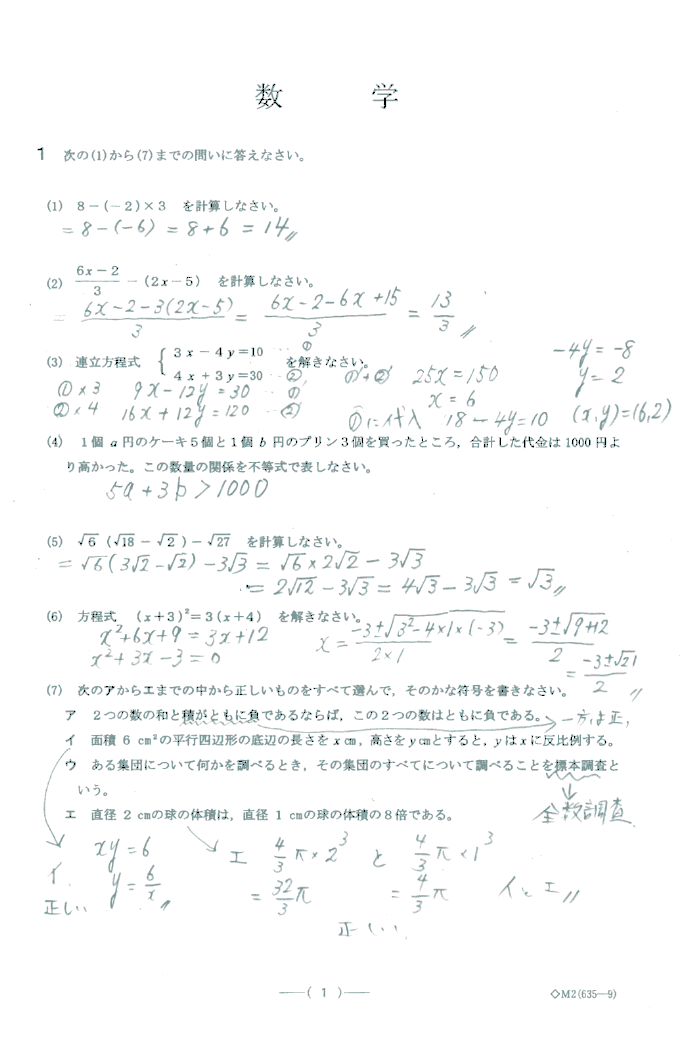 数 学
1 次の(1)から(7)までの問いに答えなさい。
(1) 8−(−2)×3 を計算しなさい。
= 8−(−6) = 8+6 = 14〃
(2) (6x−2)/3 −(2x−5) を計算しなさい。
= (6x−2−3(2x−5))/3 = (6x−2−6x+15)/3 = 13/3〃
(3) 連立方程式 { 3x−4y=10 …① 4x+3y=30 …② を解きなさい。
①×3 9x−12y=30 …①'
②×4 16x+12y=120 …②'
①'+②' 25x=150
x=6
①に代入 18−4y=10
−4y=−8
y=2
(x,y)=(6,2)
(4) 1個 a 円のケーキ5個と1個 b 円のプリン3個を買ったところ，合計した代金は1000円よ
り高かった。この数量の関係を不等式で表しなさい。
5a+3b>1000
(5) √6 (√18 − √2)−√27 を計算しなさい。
= √6(3√2−√2)−3√3 = √6×2√2−3√3
= 2√12−3√3 = 4√3−3√3 = √3〃
(6) 方程式 (x+3)²=3(x+4) を解きなさい。
x²+6x+9=3x+12
x²+3x−3=0
x= (−3±√(3²−4×1×(−3)))/(2×1) = (−3±√(9+12))/2
= (−3±√21)/2〃
(7) 次のアからエまでの中から正しいものをすべて選んで，そのかな符号を書きなさい。
ア 2つの数の和と積がともに負であるならば，この2つの数はともに負である。 → 一方は正，
イ 面積 6 cm²の平行四辺形の底辺の長さを x cm，高さを y cmとすると，y は x に反比例する。
ウ ある集団について何かを調べるとき，その集団のすべてについて調べることを標本調査と
いう。
全数調査
エ 直径 2 cmの球の体積は，直径 1 cmの球の体積の8倍である。
xy=6
イ y=6/x〃
正しい
エ 4/3 π×2³ と 4/3 π×1³
= 32/3 π = 4/3 π イとエ〃
正しい
—( 1 )—
◇M2(635—9)